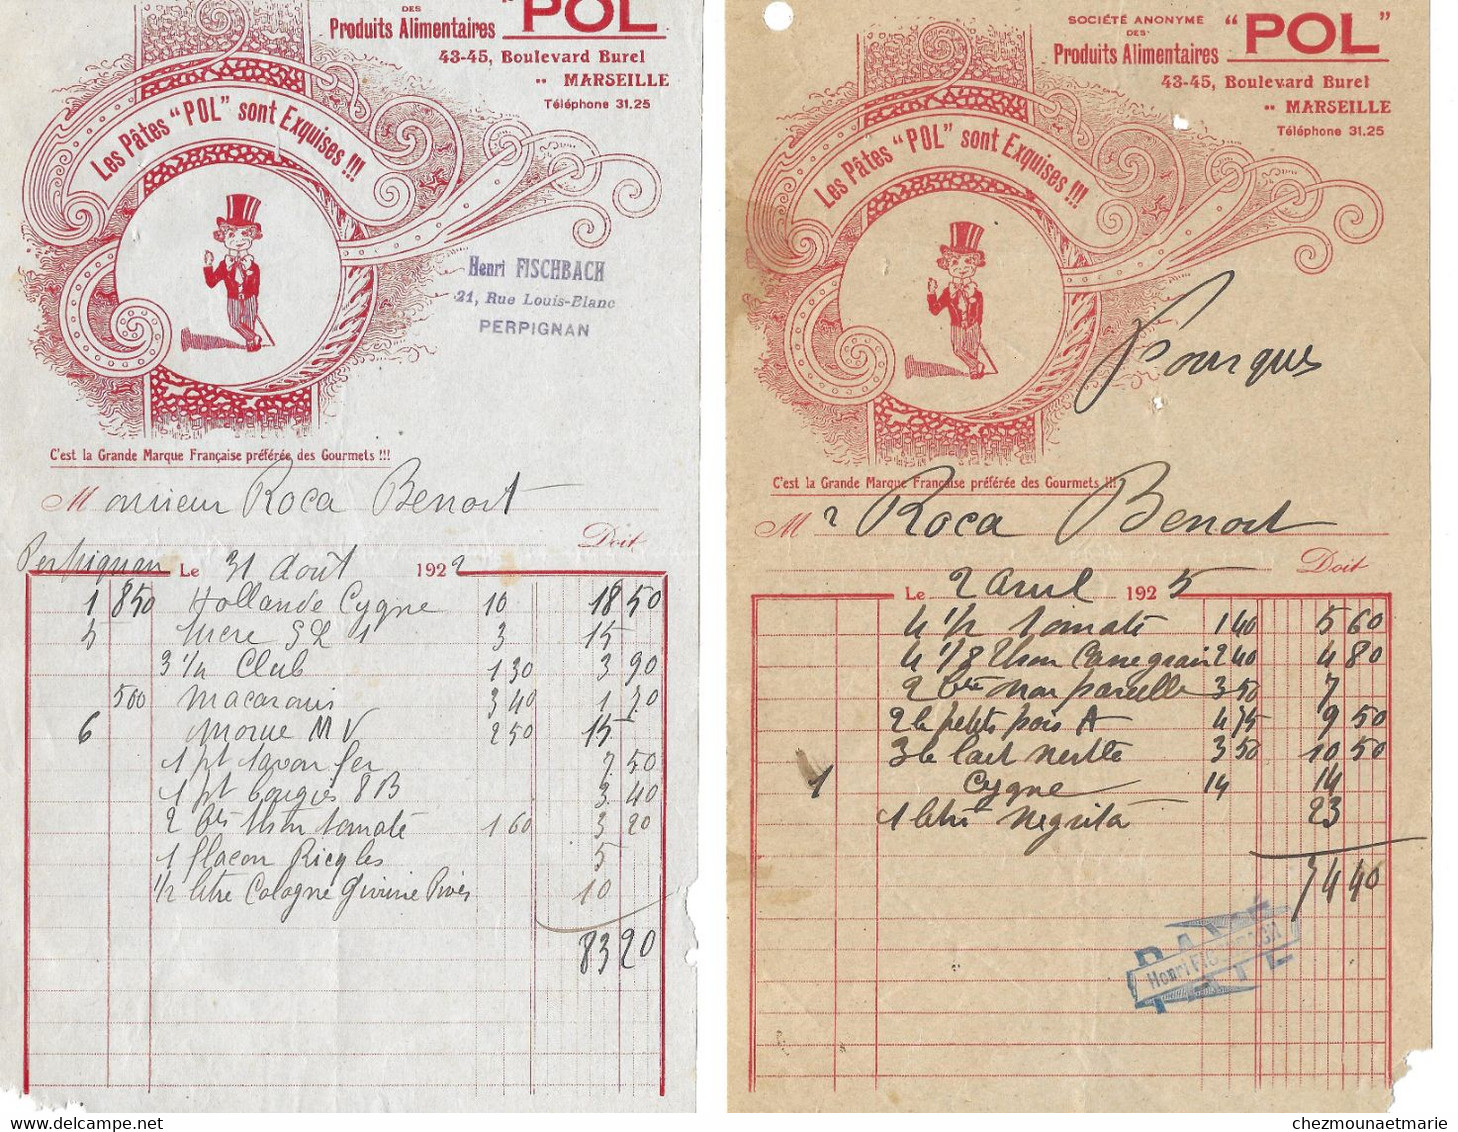 DES
Produits Alimentaires "POL
43-45, Boulevard Burel
" MARSEILLE
Téléphone 31.25
Les Pâtes "POL" sont Exquises !!!
Henri FISCHBACH
21, Rue Louis-Blanc
PERPIGNAN
C'est la Grande Marque Française préférée des Gourmets !!!
Monsieur Roca Benoit
Doit
Perpignan Le 31 Août 1922
1 850 Hollande Cygne 10 18 50
5 Sucre 3 15
3 1/2 Club 130 3 90
500 Macaronis 340 1 70
6 Morue M V 250 15
1 pt savon fer 7 50
1 pt bougies 8B 3 40
2 btes thon tomate 160 3 20
1 flacon Ricqles 5
1/2 litre Cologne 10
83 20
SOCIÉTÉ ANONYME
DES
Produits Alimentaires "POL"
43-45, Boulevard Burel
" MARSEILLE
Téléphone 31.25
Les Pâtes "POL" sont Exquises !!!
Fourques
C'est la Grande Marque Française préférée des Gourmets !!!
Mr Roca Benoit
Doit
Le 2 avril 1925
4 1/2 tomate 140 5 60
4 1/8 thon 240 4 80
2 btes 350 7
2 b petits pois A 475 9 50
3 b lait nestle 350 10 50
1 Cygne 14 14
1 litre Negrita 23
74 40
PAYÉ
Henri FISCHBACH